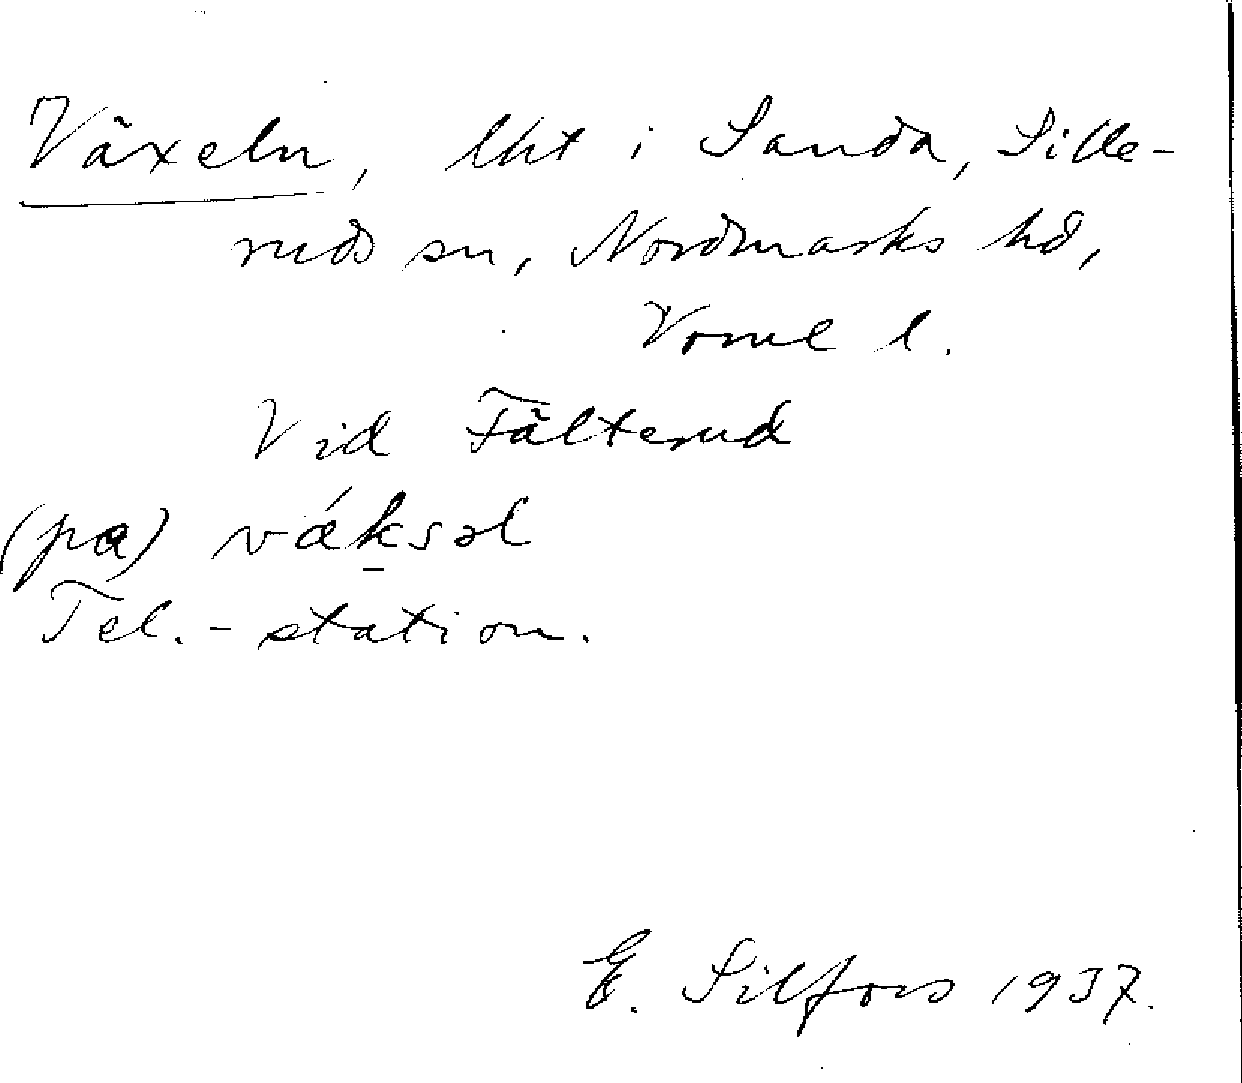 Växeln, lht i Sanda, Sille-
ruds sn, Nordmarks hd,
Vrml l.
Vid Fälterud
(pa) vǽk̠səl
Tel.-station.
E. Silfors 1937.